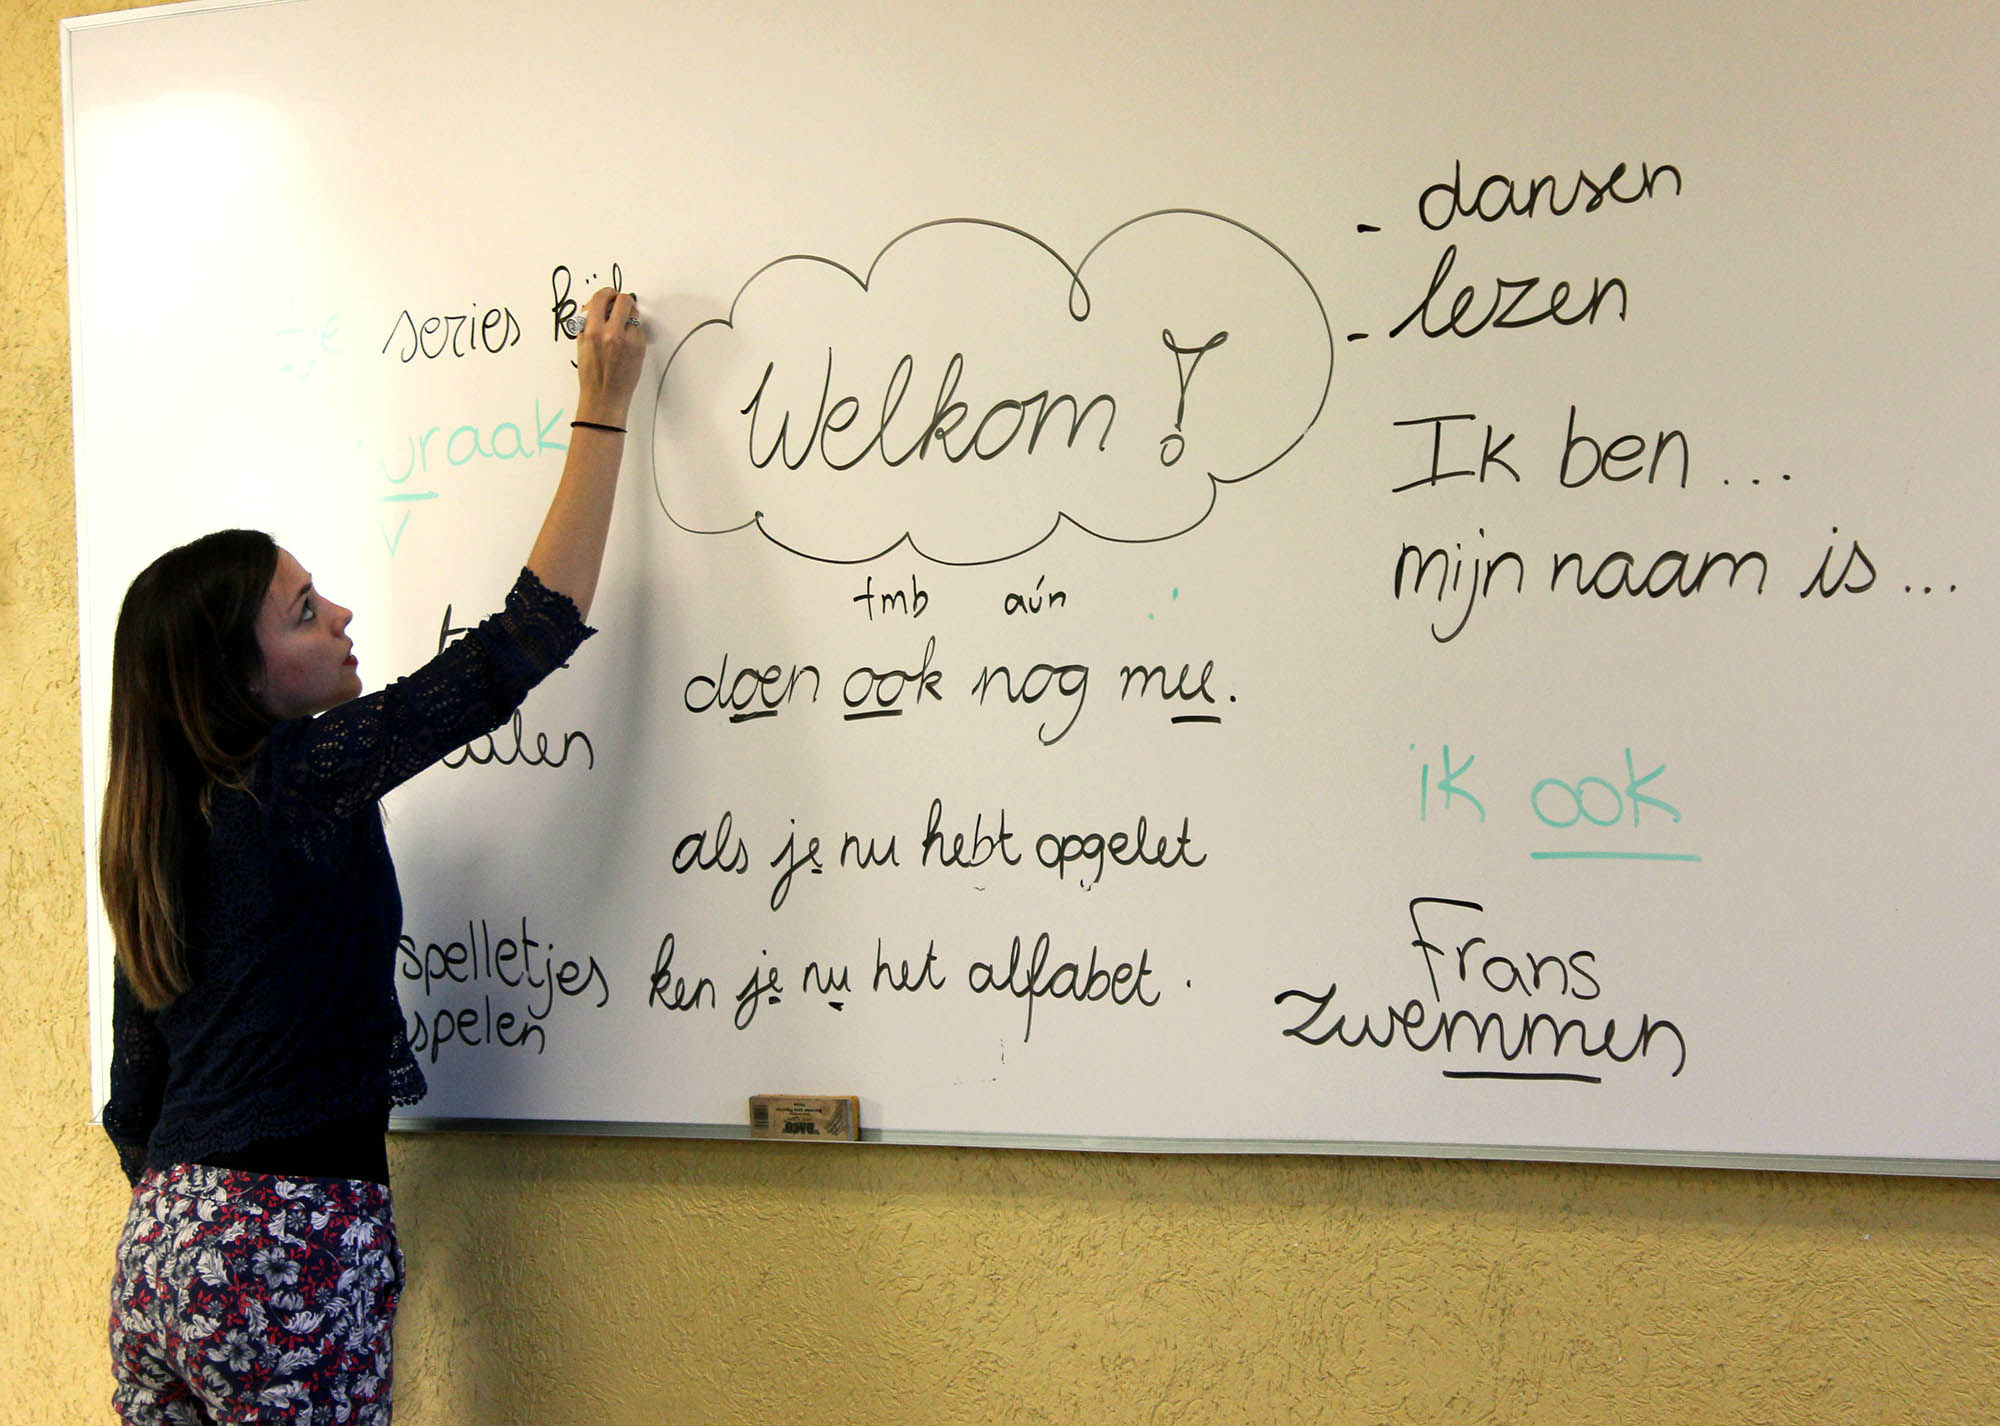 series
wraak
v
talen
spelletjes
spelen
Welkom!
tmb aún
doen ook nog mee.
als je nu hebt opgelet
ken je nu het alfabet.
- dansen
- lezen
Ik ben ...
mijn naam is ...
ik ook
Frans
zwemmen